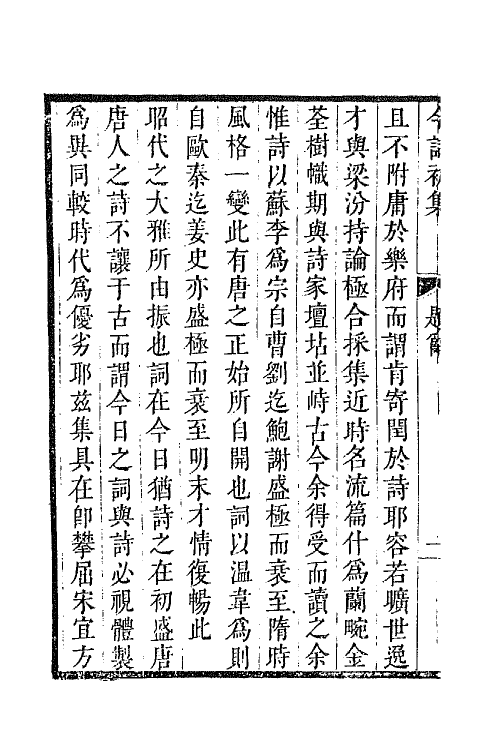 今詞初集
題辭
二
且不附庸於樂府而謂肯寄閏於詩耶容若曠世逸
才與梁汾持論極合採集近時名流篇什爲蘭畹金
荃樹幟期與詩家壇坫並峙古今余得受而讀之余
惟詩以蘇李爲宗自曹劉迄鮑謝盛極而衰至隋時
風格一變此有唐之正始所自開也詞以温韋爲則
自歐秦迄姜史亦盛極而衰至明末才情復暢此
昭代之大雅所由振也詞在今日猶詩之在初盛唐
唐人之詩不讓于古而謂今日之詞與詩必視體製
爲異同較時代爲優劣耶兹集具在卽攀屈宋宜方